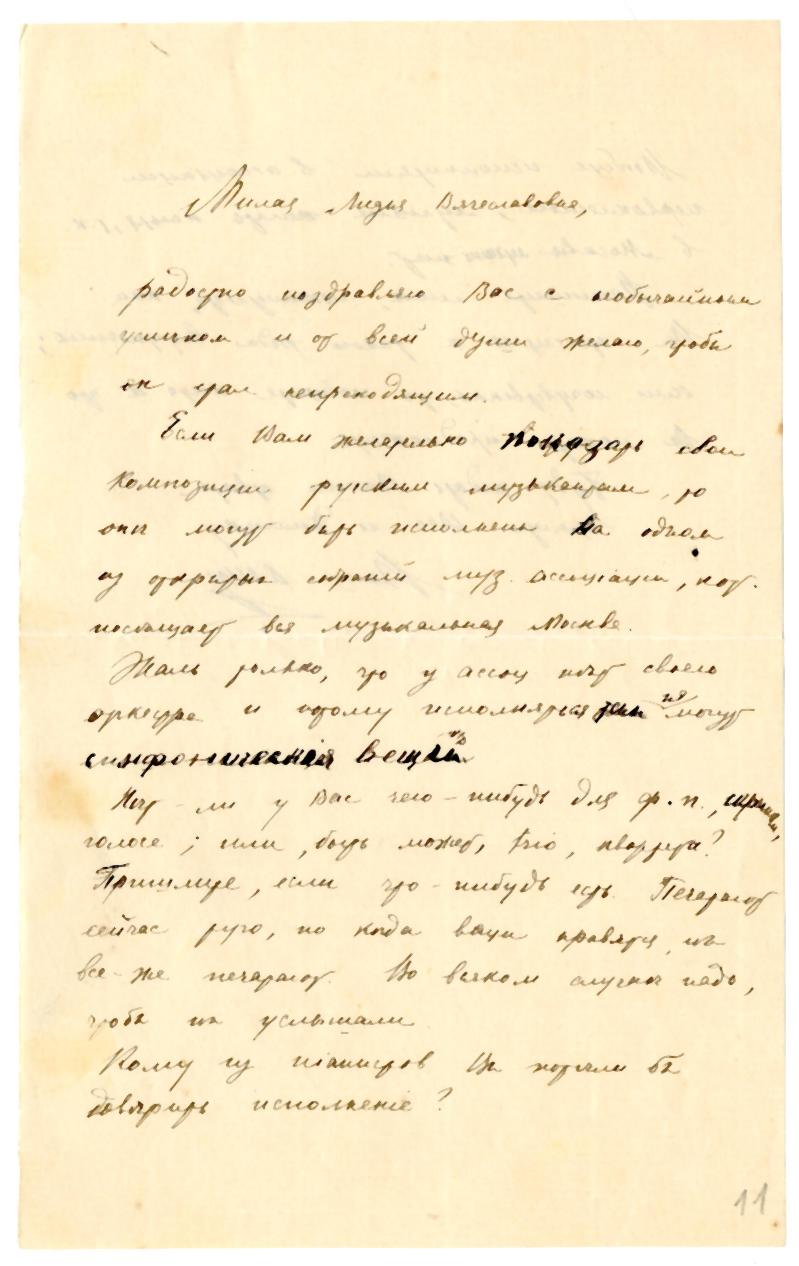 Милая Лидья Вячеславовна,
радостно поздравляю Вас с необычайным
успехом и от всей души желаю, чтобы
он стал непреходящим.
Если Вам желательно показать свои
композиции русским музыкантам, то
они могут быть исполнены на одном
из открытых собраний муз. ассоциации, кот.
посещает вся музыкальная Москва.
Жаль только, что у ассоц нѣт своего
оркестра и потому исполняться не могут
симфоническія вещи.
Нѣт-ли у Вас чего-нибудь для ф.п., скрипки,
голоса; или, быть может, trio, квартета?
Пришлите, если что-нибудь есть. Печатают
сейчас туго, но когда вещи нравятся, их
все-же печатают. Во всяком случае надо,
чтобы их услышали.
Кому из піанистов Вы хотѣли бы
довѣрить исполненіе?
11